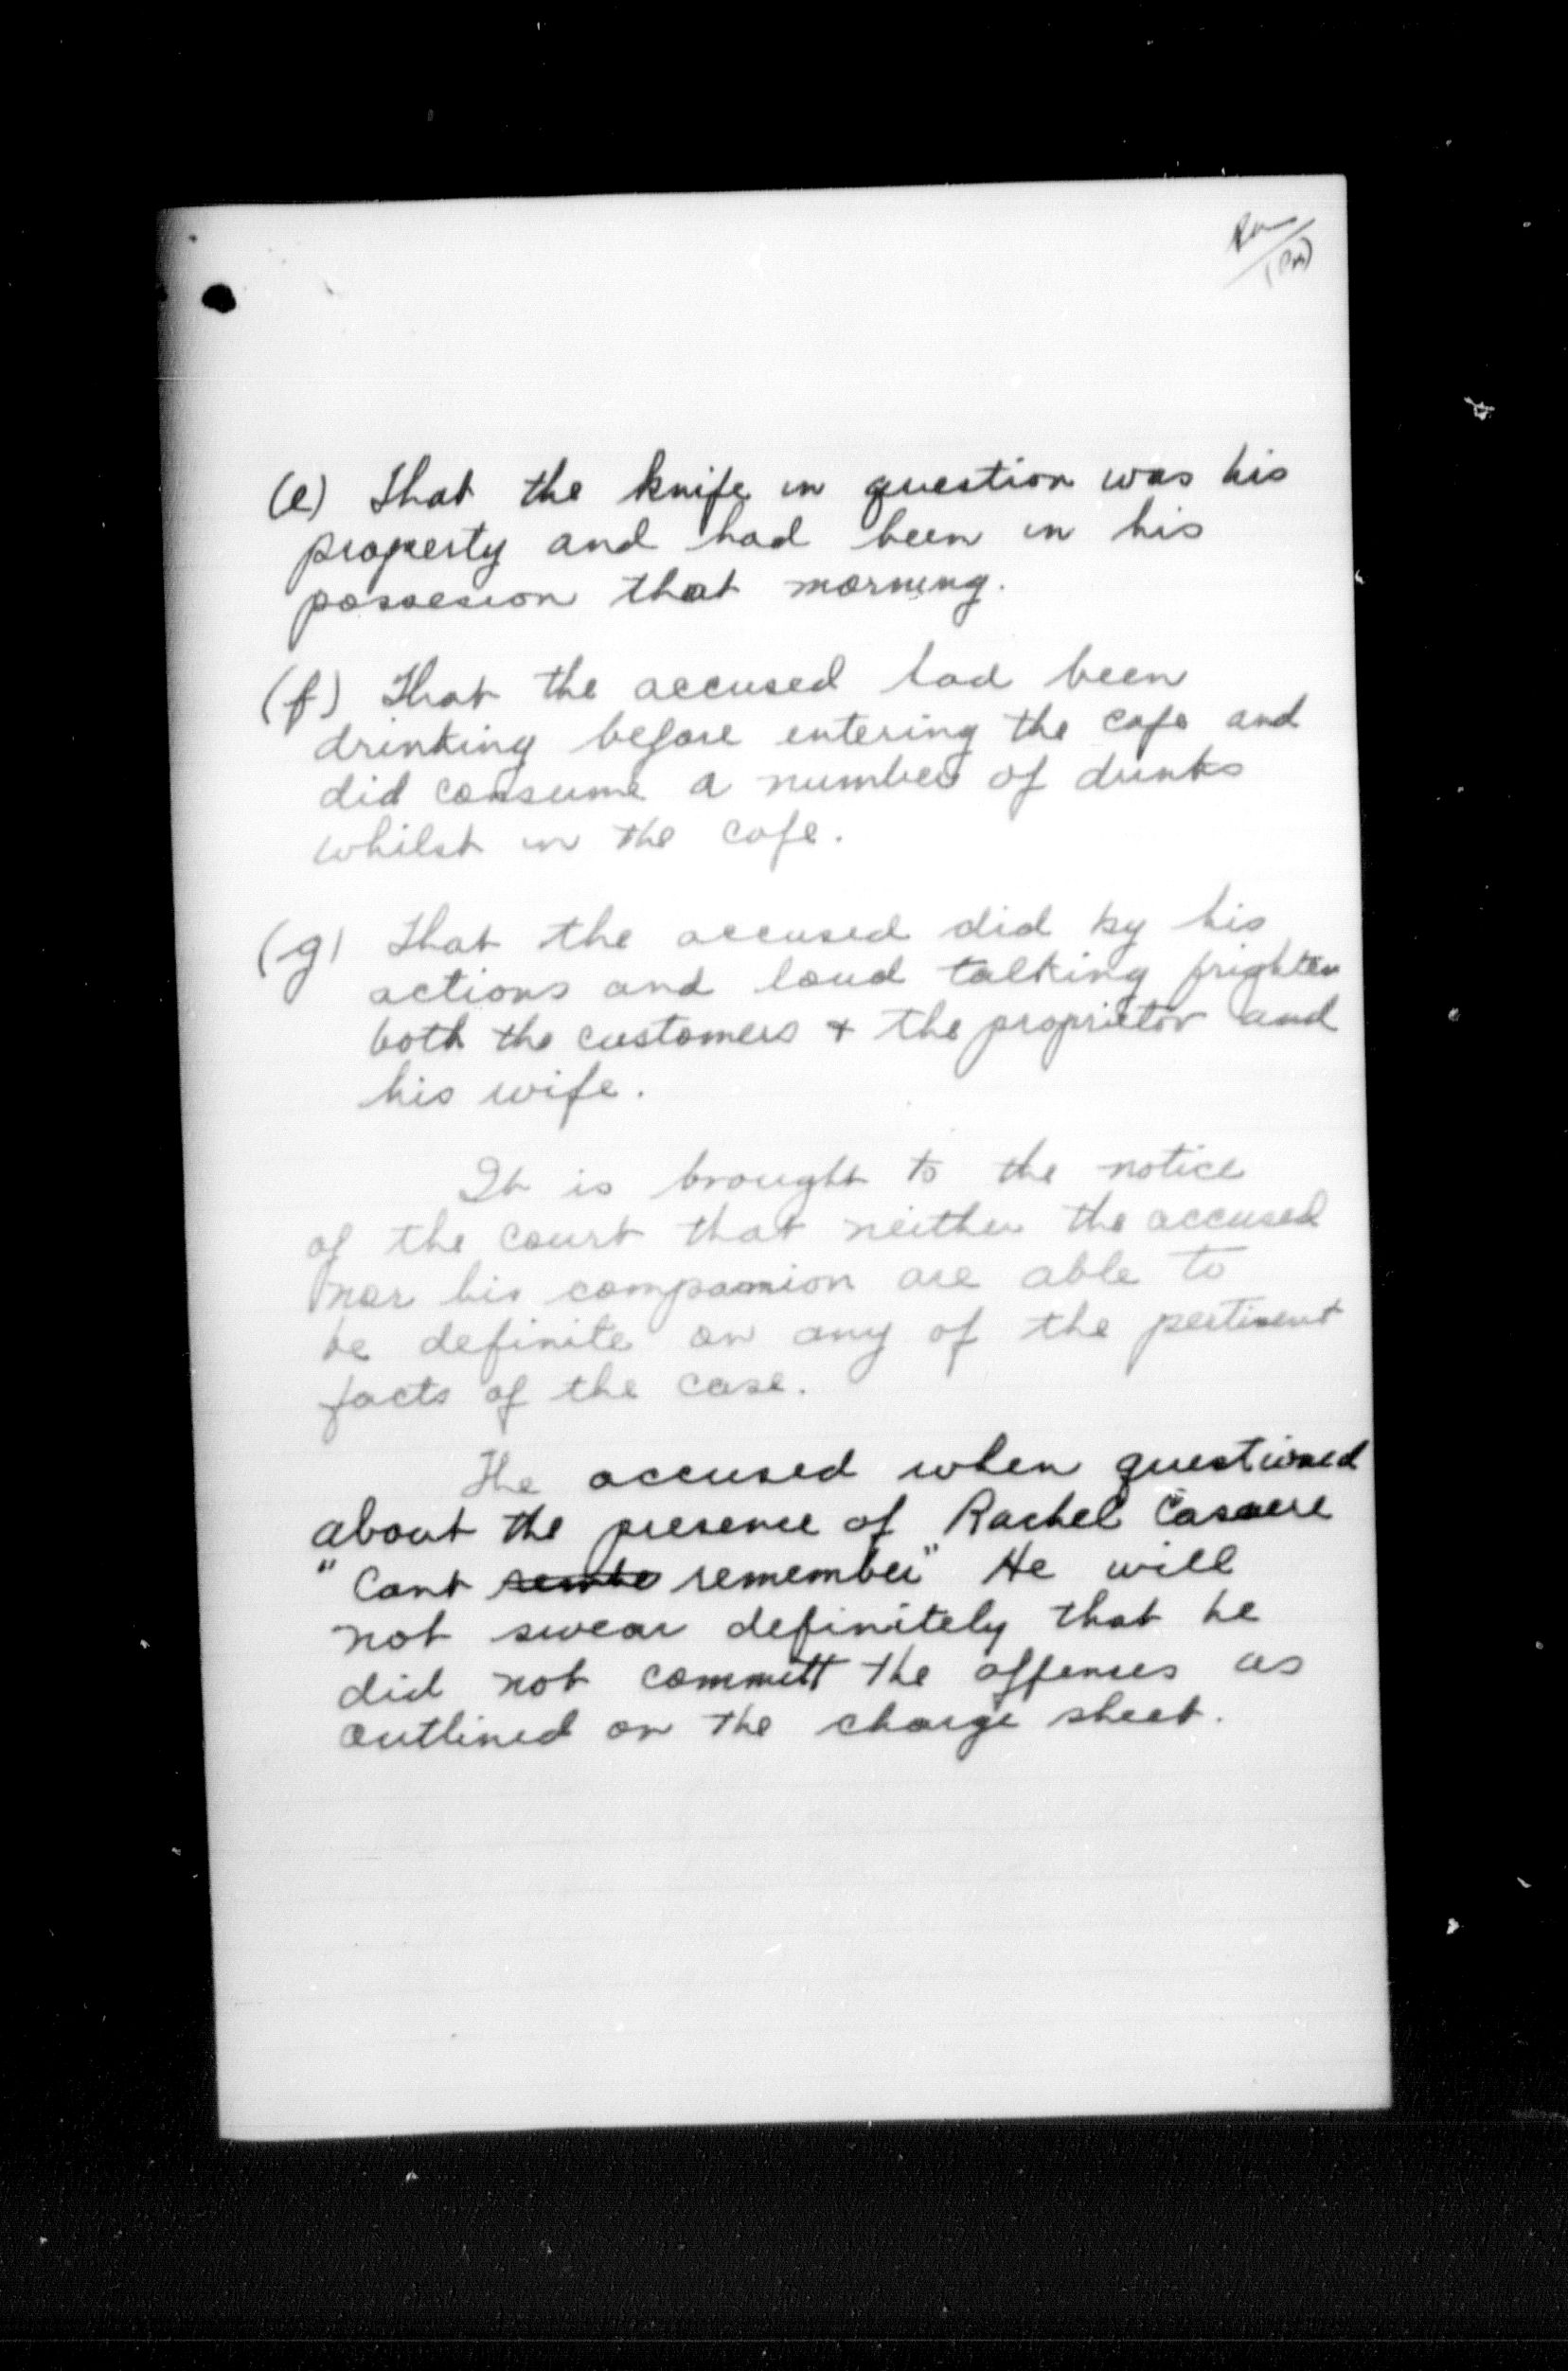 (e) That the knife in question was his
property and had been in his
possesion that morning.
(f) That the accused had been
drinking before entering the cafe and
did consume a number of drinks
whilst in the cafe.
(g) That the accused did by his
actions and loud talking frighten
both the customers + the proprietor and
his wife.
It is brought to the notice
of the court that neither the accused
nor his companion are able to
be definite on any of the pertinent
facts of the case.
The accused when questioned
about the presence of Rachel
"Cant remember" He will
not swear definitely that he
did not committ the offenses as
outlined on the charge sheet.